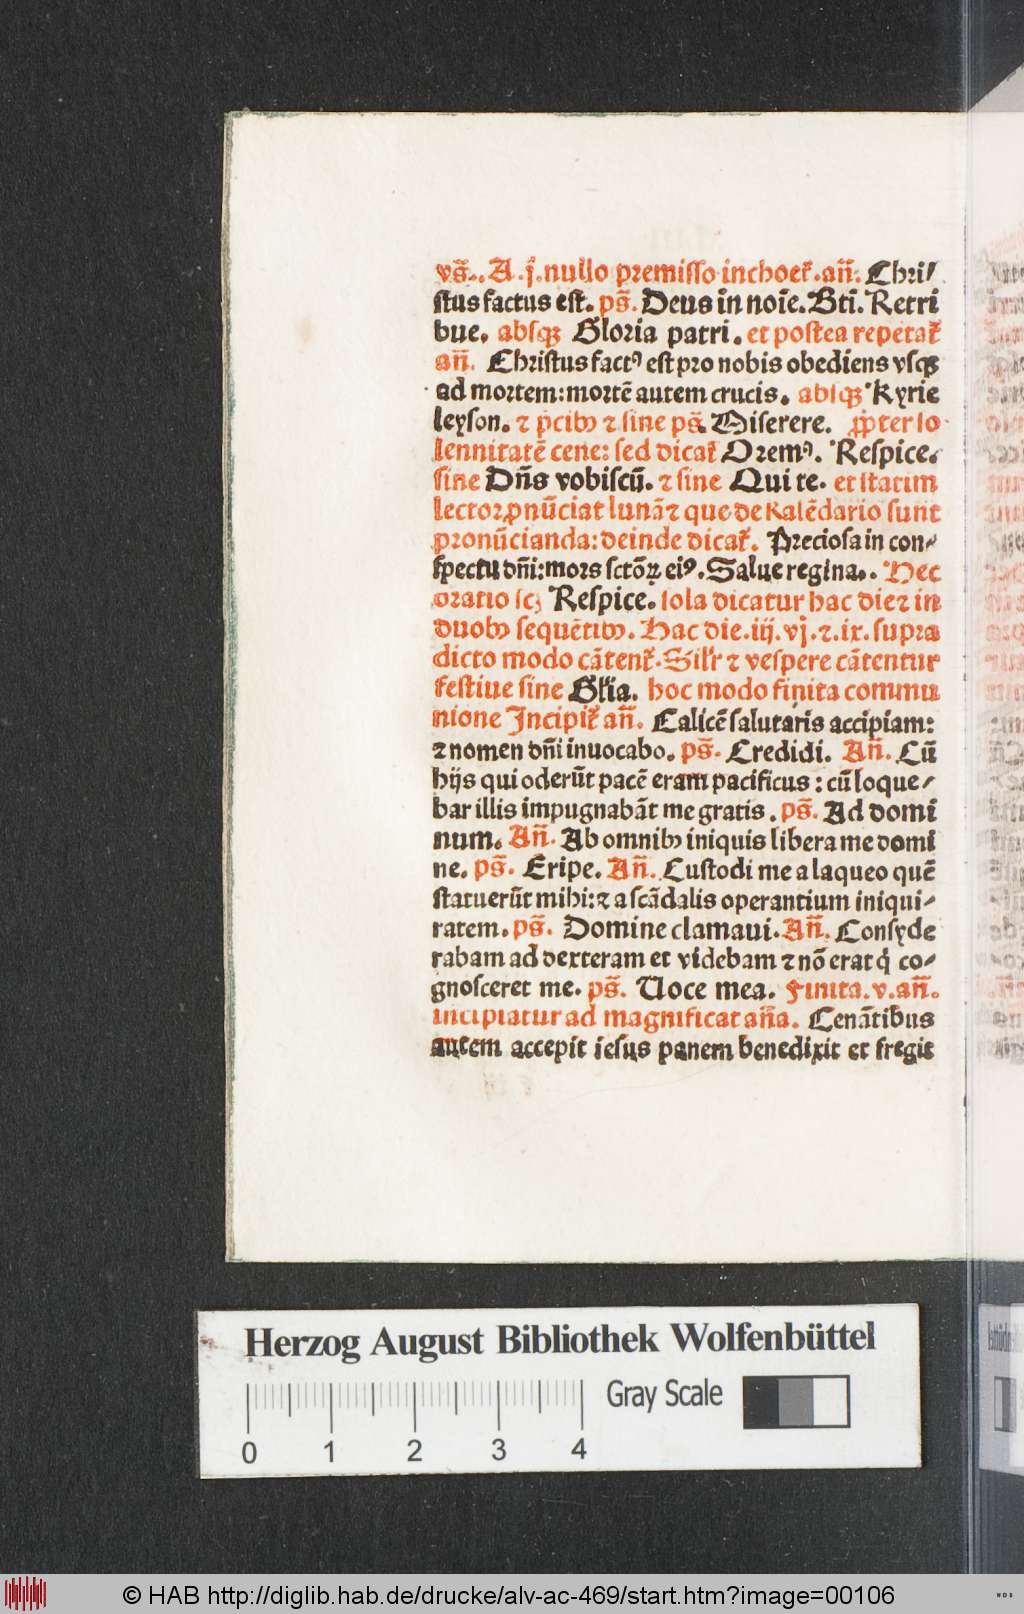 vs̄.. A. j. nullo premisso inchoet᷑. an̄. Chri⸗
stus factus est. ps̄. Deus in noīe. Bti. Retri
bue. absqꝫ Gloria patri. et postea repetat᷑
an̄. Christus factꝰ est pro nobis obediens vsqꝫ
ad mortem: mortē autem crucis. absqꝫ Kyrie
leyson. ⁊ p̄cibꝰ ⁊ sine ps̄. Miserere. ꝓpter so
lennitatē cene: sed dicat᷑ Oremꝰ. Respice.
sine Dn̄s vobiscū. ⁊ sine Qui te. et statim
lector ꝓnūciat lunā ⁊ que de kalēdario sunt
pronūcianda: deinde dicat᷑. Preciosa in con⸗
spectu dn̄i: mors sctōꝝ eiꝰ. Salue regina.. Hec
oratio scꝫ Respice. sola dicatur hac die ⁊ in
duobꝰ sequētibꝰ. Hac die. iij. vj. ⁊. ix. supra
dicto modo cātent᷑. Sil'r ⁊ vespere cātentur
festiue sine Gl'ia. hoc modo finita commu
nione Incipit᷑ an̄. Calicē salutaris accipiam:
⁊ nomen dn̄i inuocabo. ps̄. Credidi. An̄. Cū
hijs qui oderūt pacē eram pacificus: cū loque⸗
bar illis impugnabāt me gratis. ps̄. Ad domi
num. An̄. Ab omnibꝰ iniquis libera me domi
ne. ps̄. Eripe. An̄. Custodi me a laqueo quē
statuerūt mihi: ⁊ a scādalis operantium iniqui⸗
tatem. ps̄. Domine clamaui. An̄. Consyde
rabam ad dexteram et videbam ⁊ nō erat q́ co⸗
gnosceret me. ps̄. Uoce mea. Finita. v. an̄.
incipiatur ad magnificat an̄a. Cenātibus
autem accepit iesus panem benedixit et fregit
Herzog August Bibliothek Wolfenbüttel
Gray Scale
0 1 2 3 4
© HAB http://diglib.hab.de/drucke/alv-ac-469/start.htm?image=00106